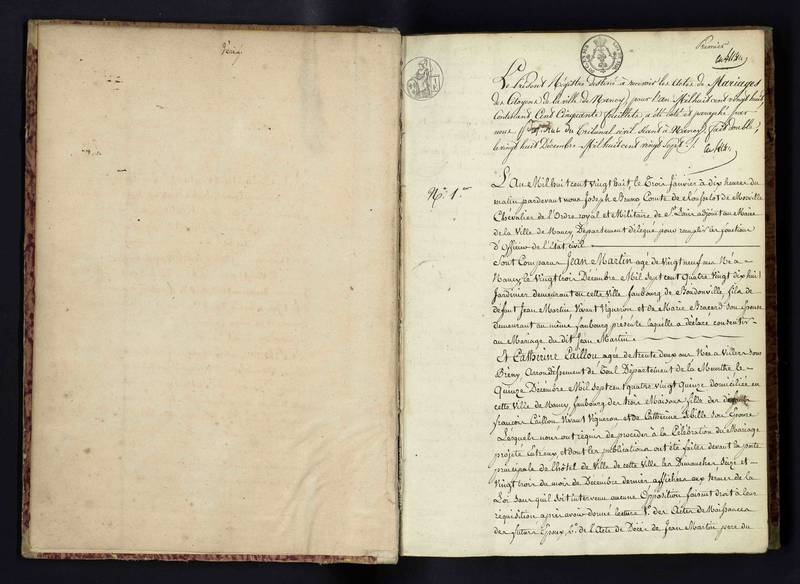 Premier
Le Présent Régistre destiné à recevoir les Actes de Mariages
des Citoyens de la ville de Nancy, pour l'an Mil huit cent vingt huit
Contenant Cent Cinquante feuillets, a été coté et paraphé par
nous du Tribunal civil séant à Nancy, fait double,
le vingt huit Décembre Mil huit cent vingt sept ./.
N.° 1.er
L'An Mil huit cent vingt huit, le Trois Janvier à dix heures du
matin pardevant nous Joseph Bruno Comte de
Chevalier de l'Ordre royal et Militaire de St. Louis adjoint au Maire
de la Ville de Nancy, Département délégué pour remplir les fonctions
d'Officier de l'état civil
Sont Comparus Jean Martin agé de vingt neuf ans Né à
Nancy, le Vingt trois Décembre Mil sept cent Quatre Vingt dix huit
Jardinier demeurant en cette Ville faubourg de Boudonville, fils de
défunt Jean Martin Vivant Vigneron et de Marie son épouse
demeurant au même faubourg présente laquelle a déclaré consentir
au Mariage du dit Jean Martin
Et Catherine Caillou agée de trente deux ans Née à Villers sous
Prény, Arrondissement de Toul Département de la Meurthe le
Quinze Décembre Mil sept cent quatre vingt Quinze domiciliée en
cette Ville de Nancy, faubourg des trois Maisons fille de
françois Caillou Vivant Vigneron et de Catherine son Epouse
Lesquels nous ont requis de procéder à la Célébration du Mariage
projeté entr'eux, et dont les publications ont été faites devant la porte
principale de l'hôtel de Ville de cette Ville les Dimanches Seize et
Vingt trois du mois de Décembre dernier affichées aux termes de la
Loi sans qu'il soit intervenu aucune Opposition faisant droit à leur
réquisition après avoir donné lecture 1.° des Actes de Naissances
des futurs Epoux, 2.° de l'Acte de Décès de Jean Martin père du